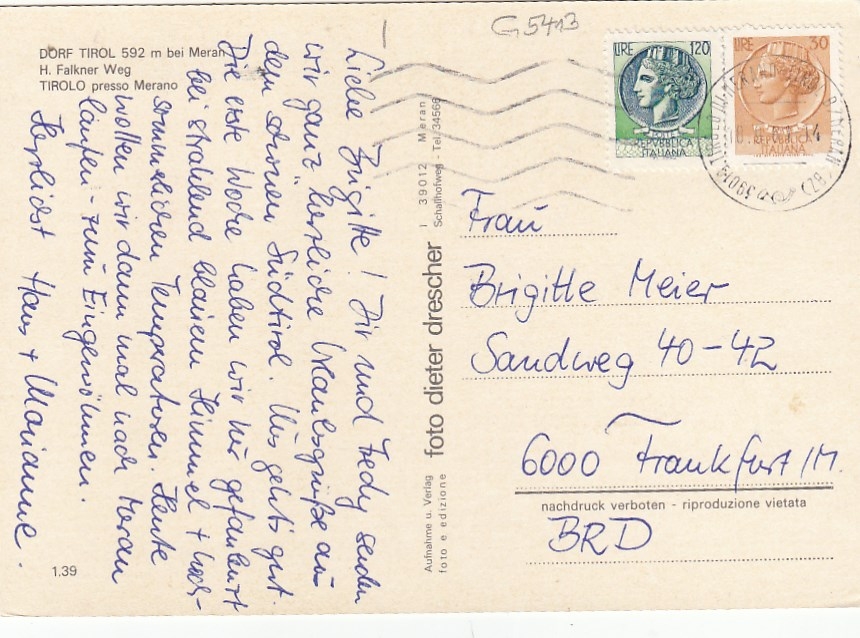 G5413
DORF TIROL 592 m bei Meran
H. Falkner Weg
TIROLO presso Merano
Liebe Brigitte! Dir und Fredy senden
wir ganz herzliche Urlaubsgrüße aus
dem schönen Südtirol. Uns geht's gut.
Die erste Woche haben wir nur gefaulenzt
bei strahlend blauem Himmel + hoch-
sommerlichen Temperaturen. Heute
wollen wir dann mal nach Meran
laufen - zum Eingewöhnen.
Herzlichst Hans + Marianne.
1.39
Aufnahme u. Verlag
foto e edizione
foto dieter drescher
I 39012 Meran
Schafhofweg - Tel. 34566
LIRE 120
REPVBBLICA
ITALIANA
LIRE 30
REPVBBLICA
ITALIANA
39019
(BZ)
Frau
Brigitte Meier
Sandweg 40-42
6000 Frankfurt/M.
nachdruck verboten - riproduzione vietata
BRD